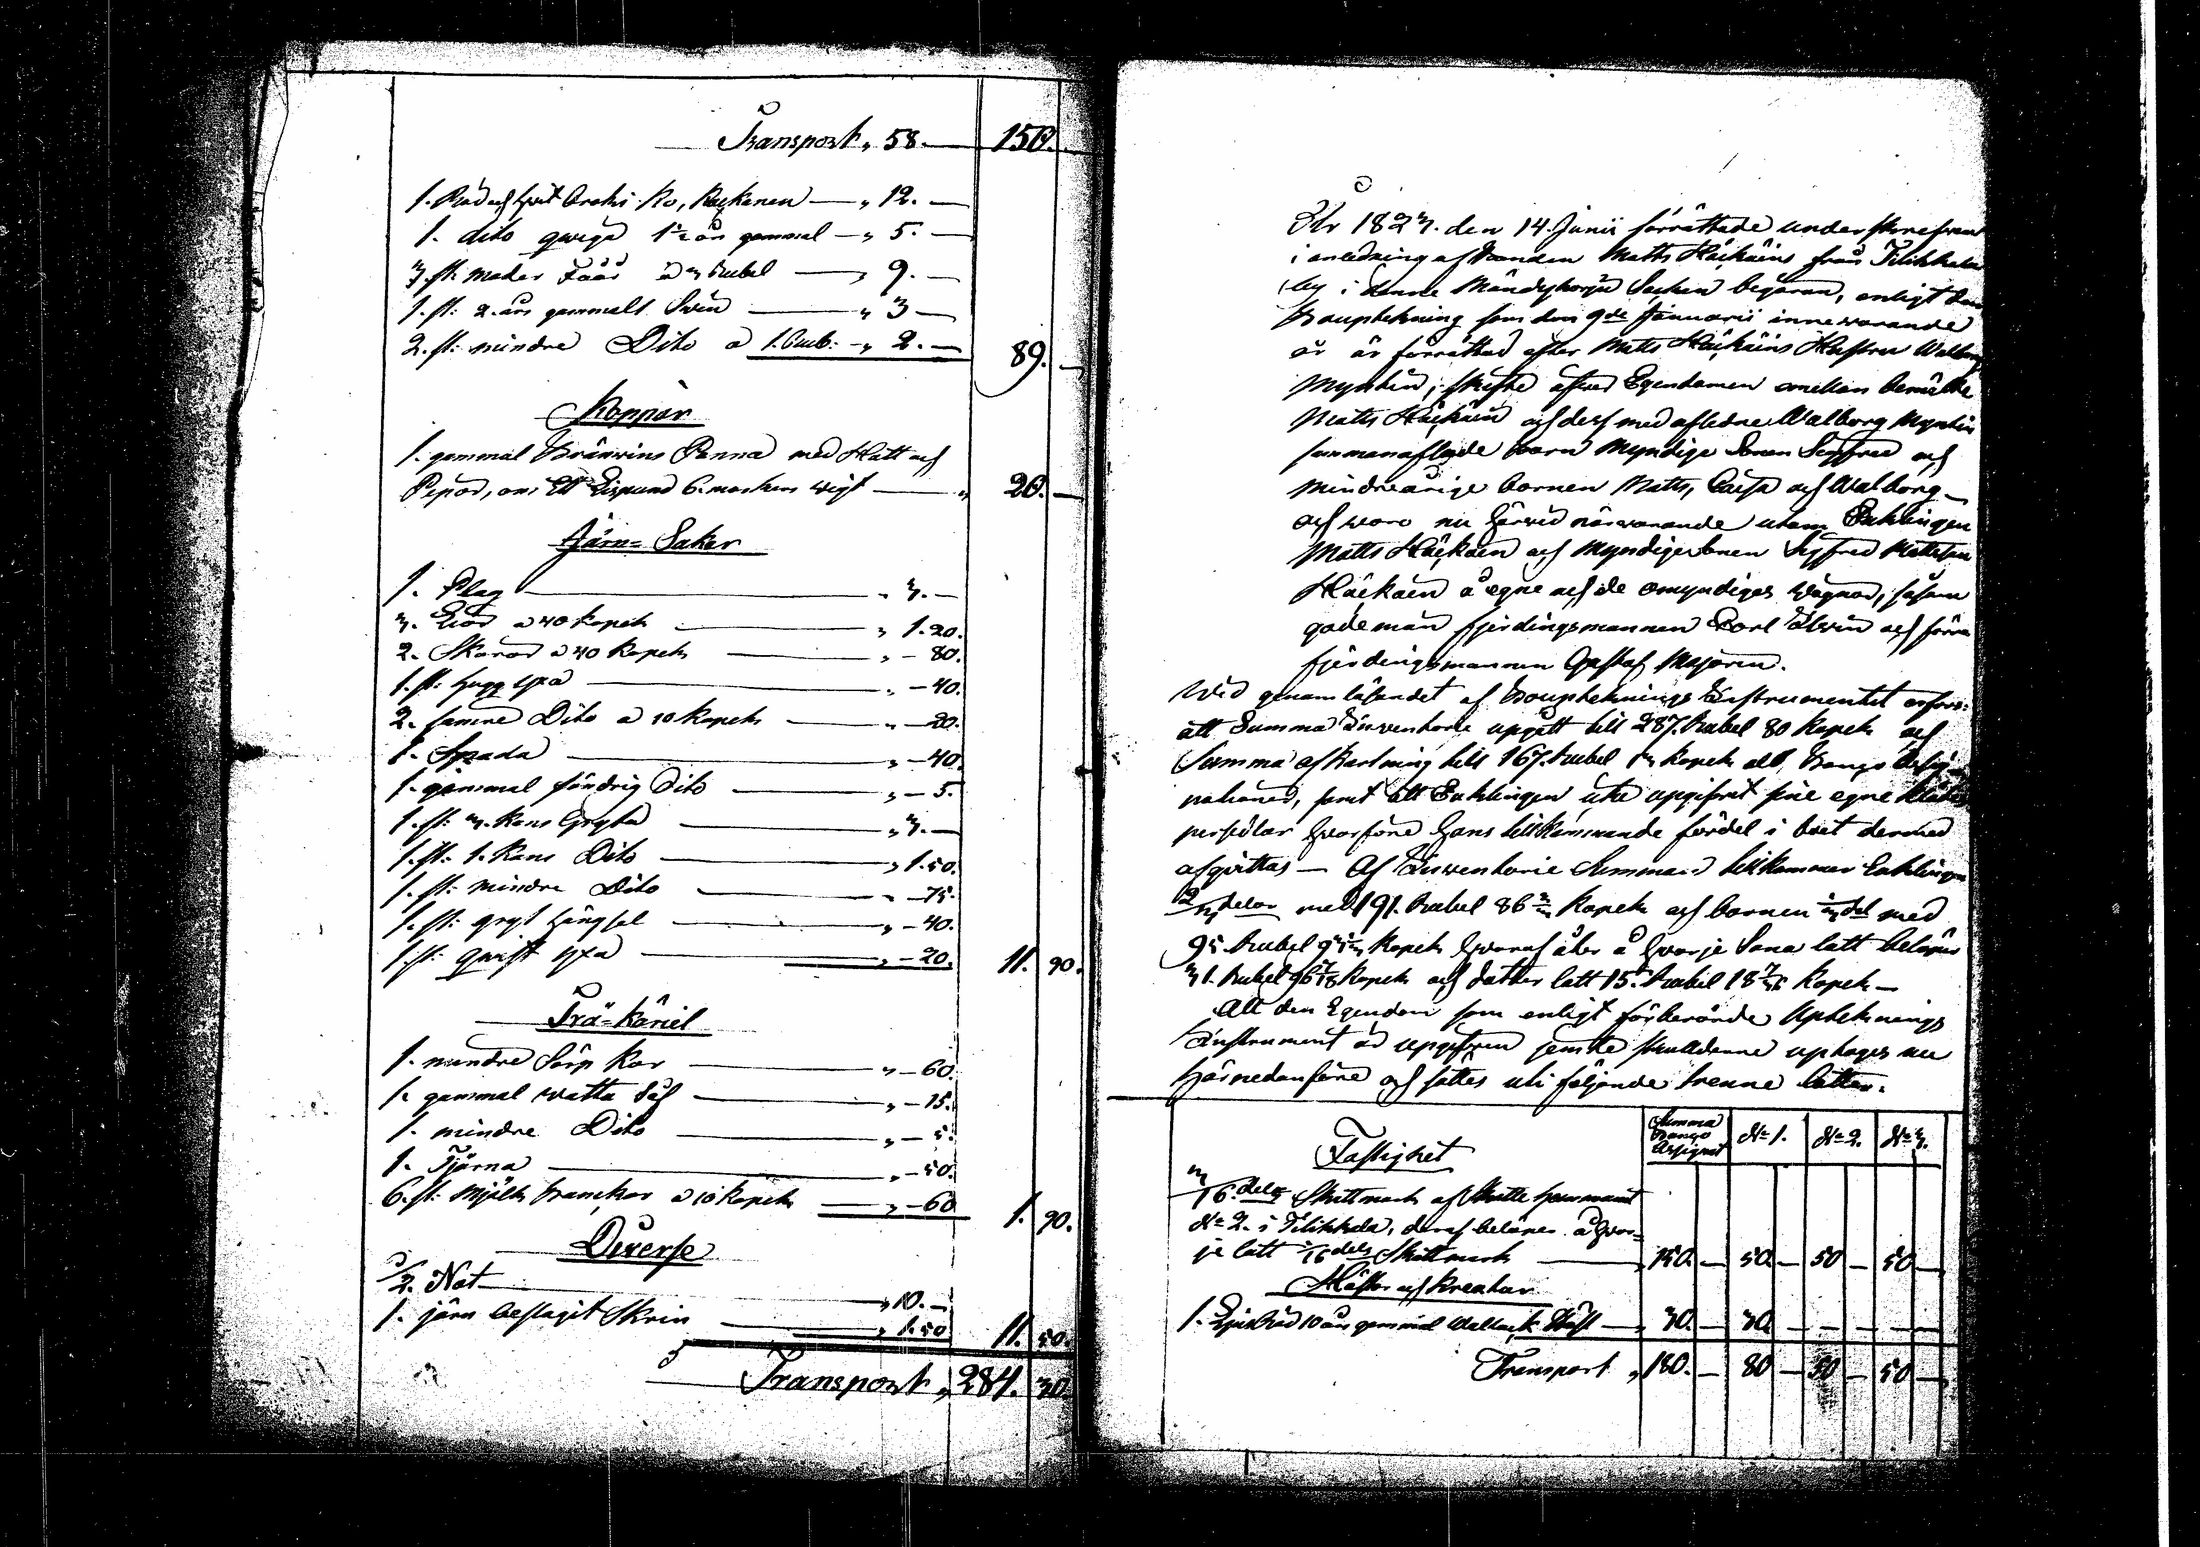 Transport „ 58. — 150.
1. Röd och hwit Ko, — „ 12. —
1. dito qwiga 1½ år gammal — „ 5. —
3. st: moder Fåår a 3 Rubel — „ 9. —
1. st: 2. års gammalt Swin — „ 3 —
2. st: mindre Dito a 1. Rub: — „ 2. — 89. —
Koppar
1. gammal Bränwins Panna med Hatt och
Pipor, om Ett Lispund 6. markers wigt — „ 20. —
Järn-Saker
1. Plog — „ 3. —
3. Liar a 40 Kopek — „ 1.20.
2. Skäror a 40 Kopek — „ — 80.
1. st: hugg yxa — „ — 40.
2. samre Dito a 10 Kopek — „ — 20.
1. Spada — „ — 40.
1. gammal söndrig Dito — „ — 5.
1. st: 3. Kans Gryta — „ 3. —
1. st: 1. Kans Dito — „ 1.50.
1. st: mindre Dito — „ — 75.
1. st: gryt hängsel — „ — 40.
1. st: qwist yxa — „ — 20. 11. 90.
Trä-käriel
1. mindre Sörp Kar — „ — 60.
1. gammal watta Så — „ — 15.
1. mindre Dito — „ — 5.
1. Tjärna — „ — 50.
6. st: Mjölk a 10 Kopek — „ — 60 1. 90.
Diverse
½ Not — „ 10. —
1. järn beslagit Skrin — „ 1.50 11. 50.
Transport „ 284. 30.
År 1823. den 14. Junii förrättade underskrefwen
i anledning af Bonden Matts Häikäins från Tilikkala
by i denne Sochn begäran, enligt den
Bouptekning som den 9de Januarii innewarande
år är förrättad efter Matts Häikäins Hustru Walborg
Myntin, skifte öfwer Egendomen emellan bemälte
Matts Häikäin och dess med afledne Walborg Myntin
sammanaflade barn Myndige Sonen Sigfred och
Mindreårige barnen Matts, Caisa och Walborg —
och woro nu härwid närwarande utom Enklingen
Matts Häikäin och Myndige Sonen Sigfred Mattsson
Häikäin å egne och de omyndiges wägnar, såsom
gode män fjerdingsmannen Carl och förra
fjerdingsmannen Gustaf Majorin.
Wid genomläsandet af Bouptecknings Instrumentet
att Summa Inventarie upgått till 287. Rubel 80 Kopek och
Summa afkortning till 167. Rubel Kopek allt Banco
samt att Enklingen icke upgifwit sine egne
persedlar hwarföre hans tillkommande fördel i boet dermed
afqwittas — Af Inwentarie Summan tillkommer Enklingen
2/3 delar med 191. Rubel 86 2/3 Kopek och barnen 1/3 del med
95. Rubel 93 1/3 Kopek hwaraf åter å hwarje Sons lått belöper
31. Rubel Kopek och dotter lått 15. Rubel Kopek —
All den Egendom som enligt förberörde Uptecknings
Instrument är upgifwen jemte skulderne uptages nu
härnedanföre och sättes uti följande trenne lotter.
Fastighet
Summa Banco Assignat N:o 1. N:o 2. N:o 3.
3/16 delar Skattmark af Skatte hemmanet
N:o 2. i Tilikkala, deraf belöper å hwar=
je lått 1/16 dels Skattmark — „ 150. — 50 — 50 — 50 —
Hästar och Kreatur
1. 10 års gammal Wallack Häst — „ 30. — 30. — — — — —
Transport „ 180. — 80 — 50 — 50 —